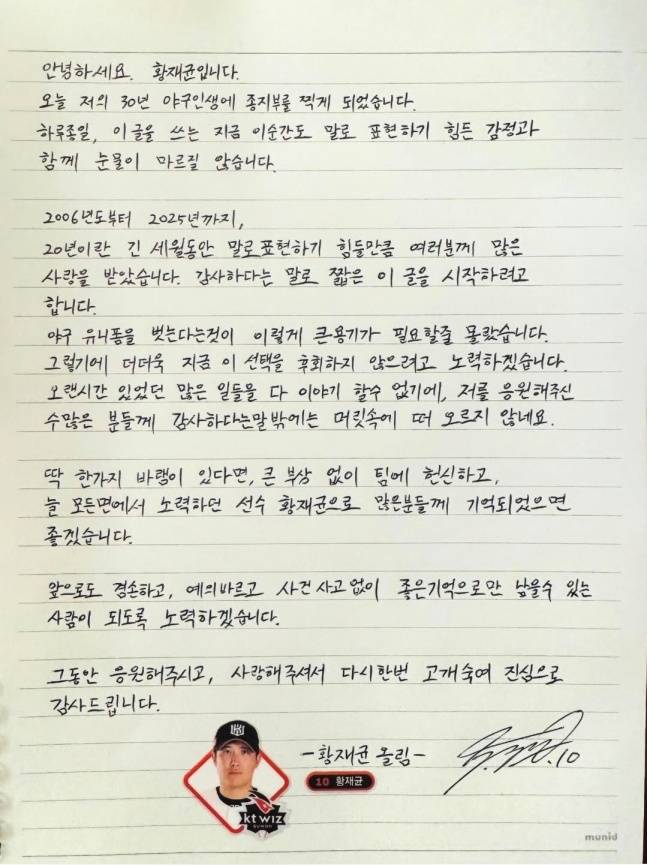 안녕하세요. 황재균입니다.
오늘 저의 30년 야구인생에 종지부를 찍게 되었습니다.
하루종일, 이 글을 쓰는 지금 이순간도 말로 표현하기 힘든 감정과
함께 눈물이 마르질 않습니다.
2006년도부터 2025년까지,
20년이란 긴 세월동안 말로표현하기 힘들만큼 여러분께 많은
사랑을 받았습니다. 감사하다는 말로 짧은 이 글을 시작하려고
합니다.
야구 유니폼을 벗는다는것이 이렇게 큰용기가 필요할줄 몰랐습니다.
그렇기에 더더욱 지금 이 선택을 후회하지 않으려고 노력하겠습니다.
오랜시간 있었던 많은 일들을 다 이야기 할수 없기에, 저를 응원해주신
수많은 분들께 감사하다는말밖에는 머릿속에 떠 오르지 않네요.
딱 한가지 바램이 있다면, 큰 부상 없이 팀에 헌신하고,
늘 모든면에서 노력하던 선수 황재균으로 많은분들께 기억되었으면
좋겠습니다.
앞으로도 겸손하고, 예의바르고 사건사고없이 좋은기억으로만 남을수 있는
사람이 되도록 노력하겠습니다.
그동안 응원해주시고, 사랑해주셔서 다시한번 고개숙여 진심으로
감사드립니다.
-황재균 올림-
10 황재균
kt wiz
10
munid